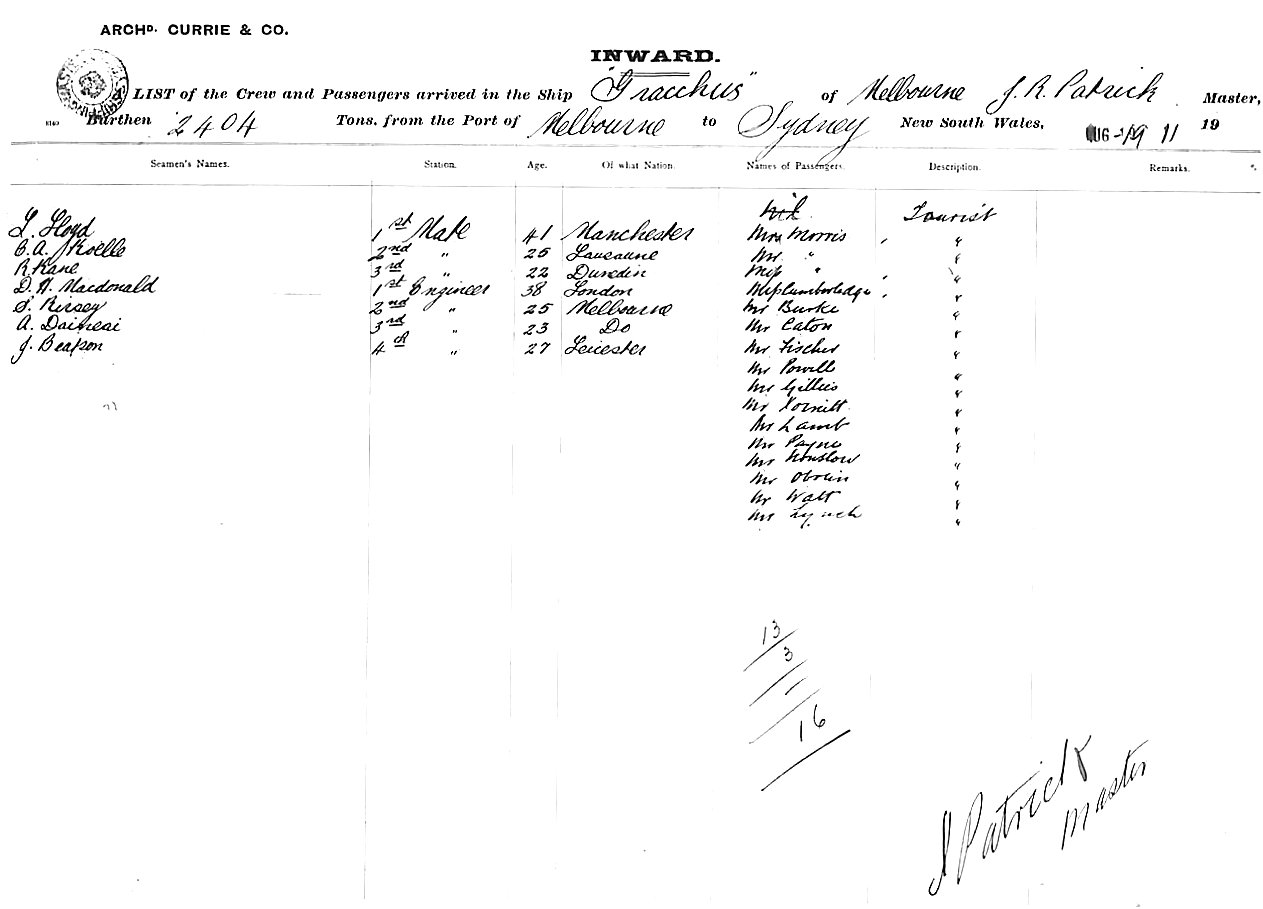 ARCHD. CURRIE & CO.
INWARD.
A LIST of the Crew and Passengers arrived in the Ship "Gracchus" of Melbourne J. R. Patrick Master,
Burthen 2404 Tons, from the Port of Melbourne to Sydney New South Wales, AUG 19 11 19
Seamen's Names. Station. Age. Of what Nation. Names of Passengers. Description. Remarks.
Nil Tourist
L. Lloyd 1st Mate 41 Manchester Mrs Morris "
C.A. 2nd " 25 Lausanne Mr " "
R Kane 3rd " 22 Dunedin Miss " "
D. H. Macdonald 1st Engineer 38 London Miss Cumberledge "
S. Kersey 2nd " 25 Melbourne Mr Burke "
A. 3rd " 23 Do Mr Eaton "
J. 4th " 27 Leicester Mr Fischer "
Mr Powell "
Mr Gillies "
Mr "
Mr Lamb "
Mr Payne "
Mr Onslow "
Mr "
Mr Watt "
Mr Lynch "
13
3
16
J Patrick
Master